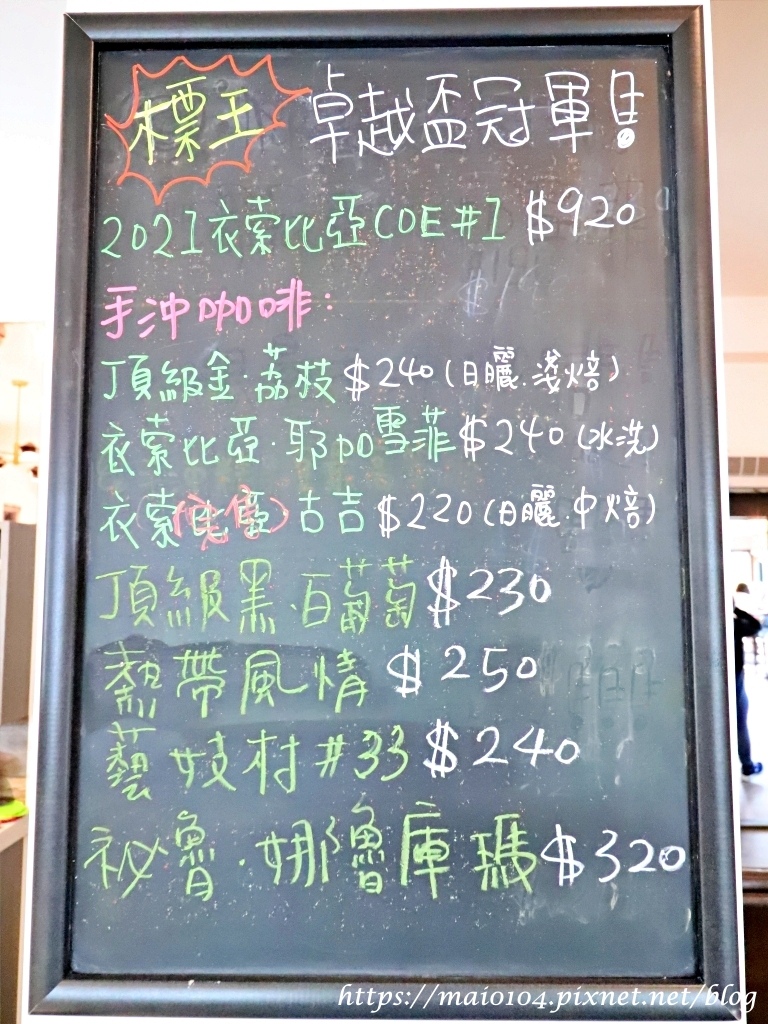 標王 卓越盃冠軍!
2021衣索比亞COE#1 $920
手沖咖啡:
頂級金·荔枝$240(日曬.淺焙)
衣索比亞·耶加雪菲$240(水洗)
衣索比亞·古吉$220(日曬.中焙)
頂級黑·白葡萄$230
熱帶風情 $250
藝妓村#33$240
祕魯·娜魯庫瑪$320
https://maio104.pixnet.net/blog